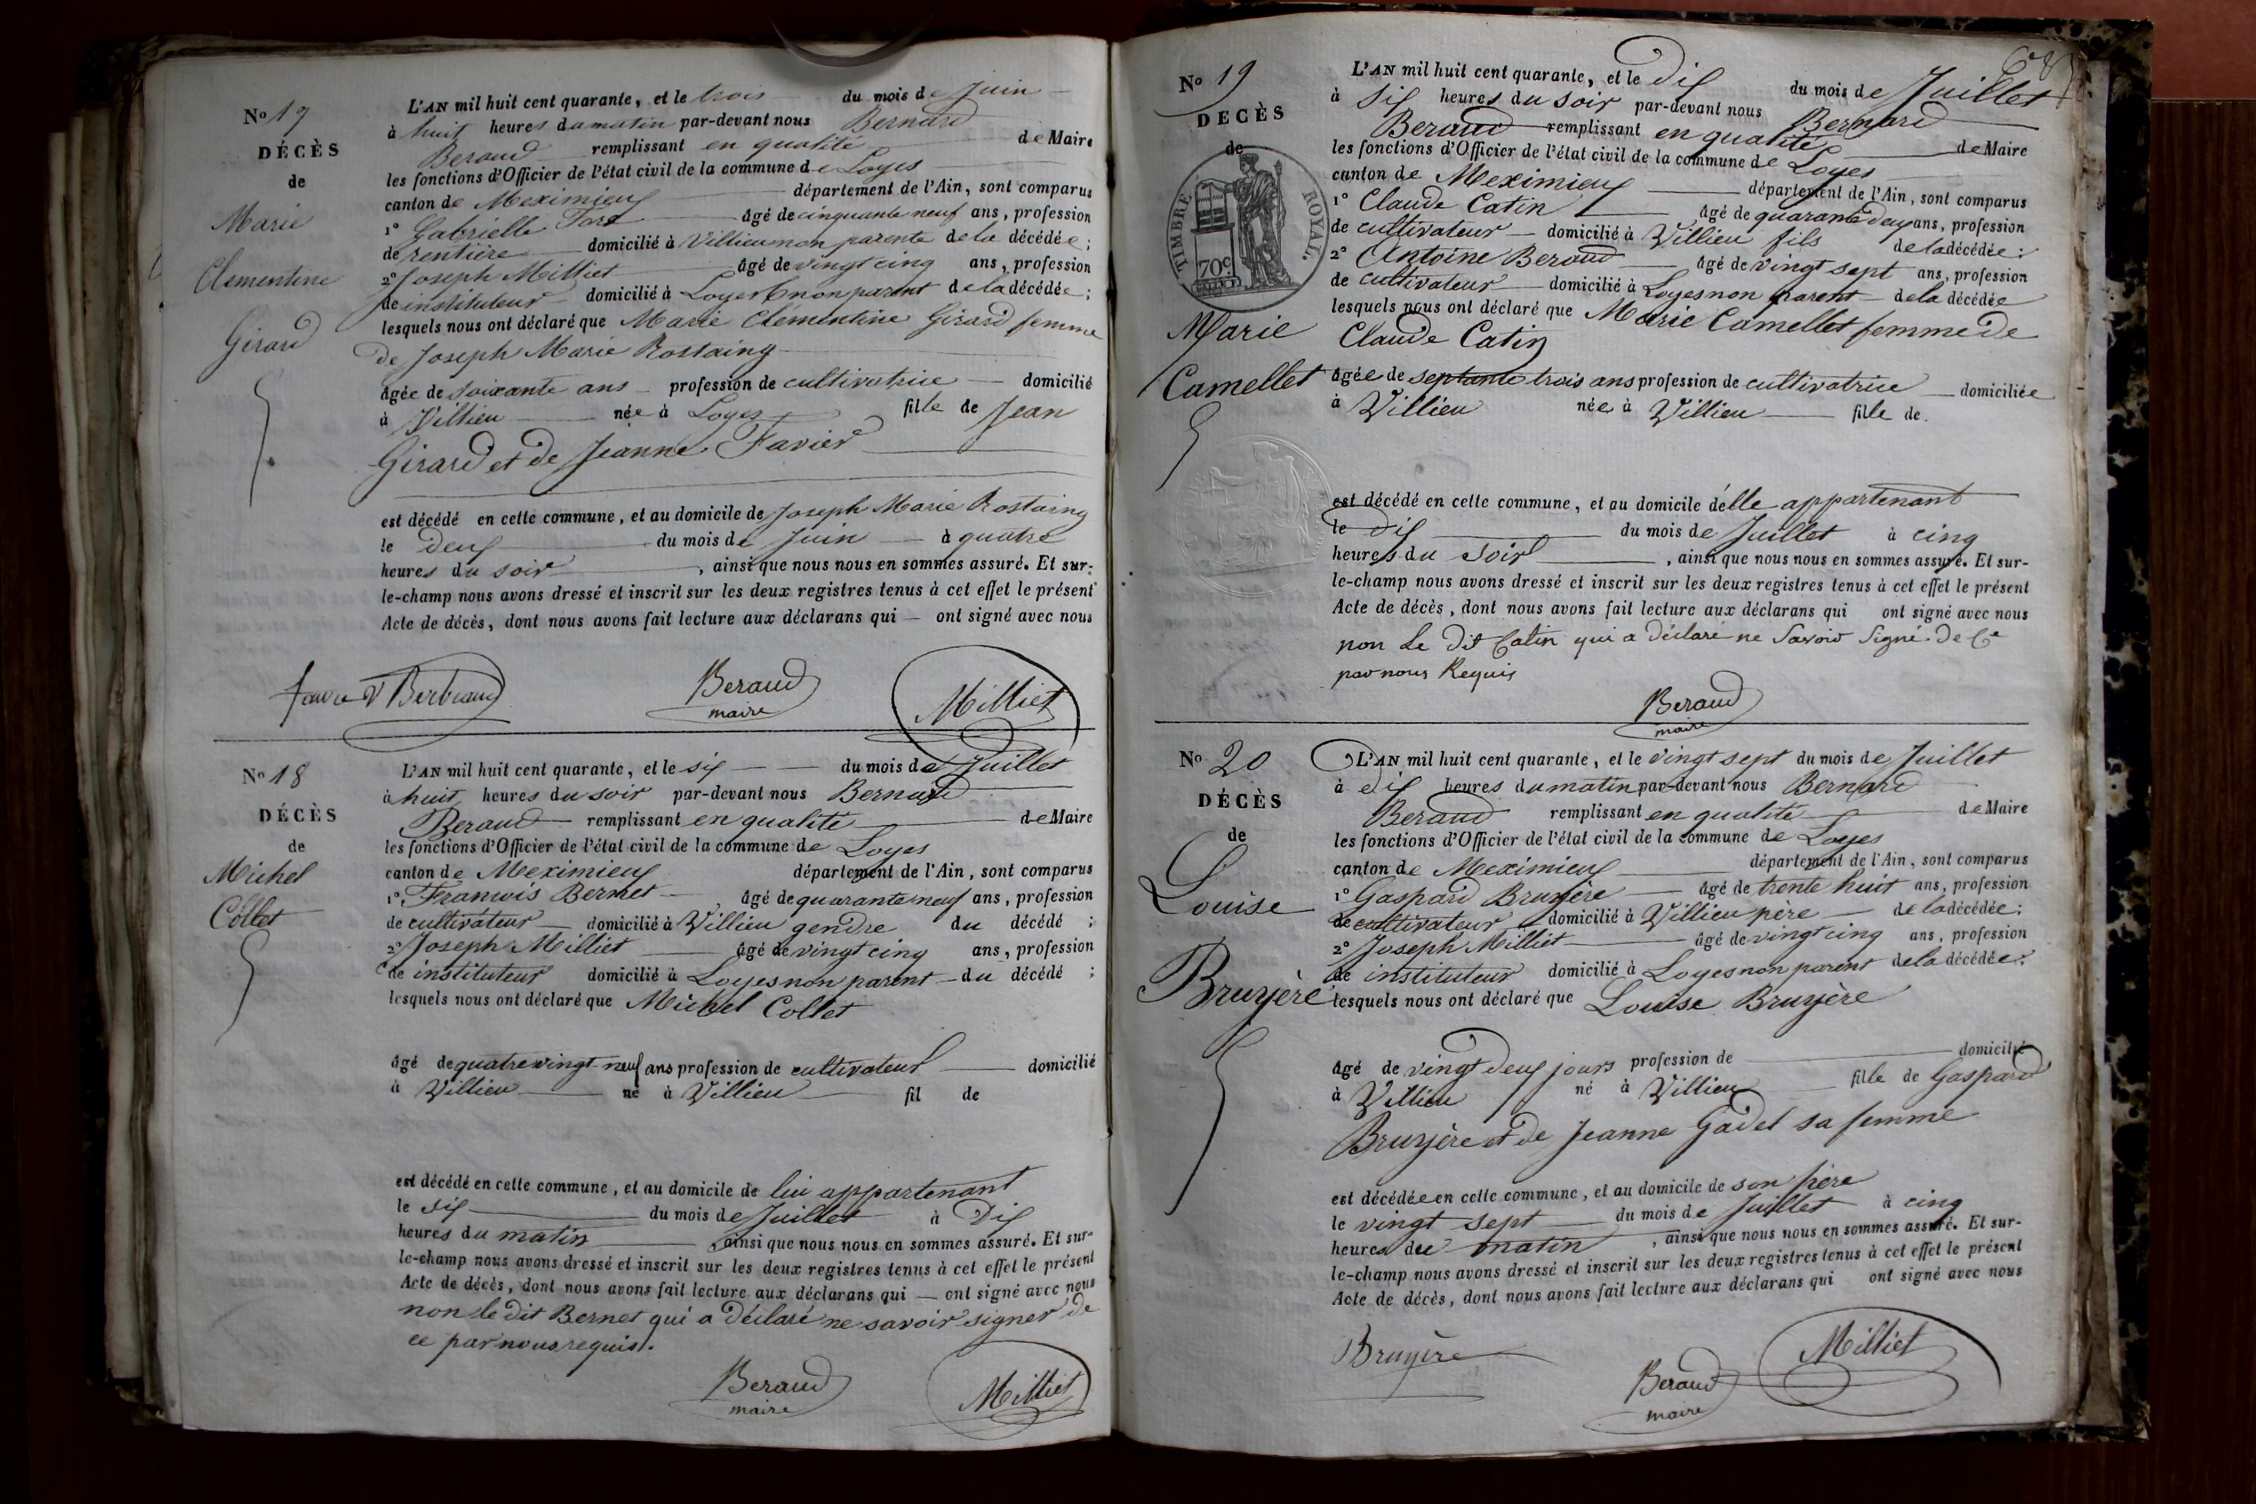 No 17
DÉCÈS
de
Marie
Clementine
Girard
L'AN mil huit cent quarante, et le trois du mois de Juin
à huit heures du matin par-devant nous Bernard
Beraud remplissant en qualité de Maire
les fonctions d'Officier de l'état civil de la commune de Loyes
canton de Meximieux département de l'Ain, sont comparus
1° Gabrielle âgé de cinquante neuf ans, profession
de rentière domicilié à Villieu non parente de la décédée ;
2° Joseph Milliet âgé de vingt cinq ans, profession
de instituteur domicilié à Loyes non parent de la décédée ;
lesquels nous ont déclaré que Marie Clementine Girard femme
de Joseph Marie Rostaing
âgée de soixante ans profession de cultivatrice domicilié
à Villieu née à Loyes fille de Jean
Girard et de Jeanne Favier
est décédé en cette commune, et au domicile de Joseph Marie Rostaing
le deux du mois de Juin à quatre
heures du soir, ainsi que nous nous en sommes assuré. Et sur-
le-champ nous avons dressé et inscrit sur les deux registres tenus à cet effet le présent
Acte de décès, dont nous avons fait lecture aux déclarans qui — ont signé avec nous
Beraud
maire
Milliet
No 18
DÉCÈS
de
Michel
Collet
L'AN mil huit cent quarante, et le six du mois de Juillet
à huit heures du soir par-devant nous Bernard
Beraud remplissant en qualité de Maire
les fonctions d'Officier de l'état civil de la commune de Loyes
canton de Meximieux département de l'Ain, sont comparus
1° Francois Bernet âgé de quarante neuf ans, profession
de cultivateur domicilié à Villieu gendre du décédé ;
2° Joseph Milliet âgé de vingt cinq ans, profession
de instituteur domicilié à Loyes non parent du décédé ;
lesquels nous ont déclaré que Michel Collet
âgé de quatre vingt neuf ans profession de cultivateur domicilié
à Villieu né à Villieu fil de
est décédé en cette commune, et au domicile de lui appartenant
le six du mois de Juillet à Dix
heures du matin, ainsi que nous nous en sommes assuré. Et sur-
le-champ nous avons dressé et inscrit sur les deux registres tenus à cet effet le présent
Acte de décès, dont nous avons fait lecture aux déclarans qui — ont signé avec nous
non le dit Bernet qui a déclaré ne savoir signer de
ce par nous requis.
Beraud
maire
Milliet
68
No 19
DECÈS
de
TIMBRE ROYAL.
70c
Marie
Camellet
L'AN mil huit cent quarante, et le dix du mois de Juillet
à six heures du soir par-devant nous Bernard
Beraud remplissant en qualité de Maire
les fonctions d'Officier de l'état civil de la commune de Loyes
canton de Meximieux département de l'Ain, sont comparus
1° Claude Catin âgé de quarante deux ans, profession
de cultivateur domicilié à Villieu fils de la décédée ;
2° Antoine Beraud âgé de vingt sept ans, profession
de cultivateur domicilié à Loyes non parent de la décédée
lesquels nous ont déclaré que Marie Camellet femme de
Claude Catin
âgée de septante trois ans profession de cultivatrice domiciliée
à Villieu née à Villieu fille de
est décédé en cette commune, et au domicile d'elle appartenant
le dix du mois de Juillet à cinq
heures du soir, ainsi que nous nous en sommes assuré. Et sur-
le-champ nous avons dressé et inscrit sur les deux registres tenus à cet effet le présent
Acte de décès, dont nous avons fait lecture aux déclarans qui ont signé avec nous
non Le dit Catin qui a déclaré ne Savoir Signé de Ce
par nous Requis
Beraud
maire
No 20
DÉCÈS
de
Louise
Bruyère
L'AN mil huit cent quarante, et le vingt sept du mois de Juillet
à dix heures du matin par-devant nous Bernard
Beraud remplissant en qualité de Maire
les fonctions d'Officier de l'état civil de la commune de Loyes
canton de Meximieux département de l'Ain, sont comparus
1° Gaspard Bruyère âgé de trente huit ans, profession
de cultivateur domicilié à Villieu père de la décédée ;
2° Joseph Milliet âgé de vingt cinq ans, profession
de instituteur domicilié à Loyes non parent de la décédée.
lesquels nous ont déclaré que Louise Bruyère
âgé de vingt deux jours profession de domicilié
à Villieu né à Villieu fille de Gaspard
Bruyère et de Jeanne Gadet sa femme
est décédée en cette commune, et au domicile de son père
le vingt sept du mois de Juillet à cinq
heures du matin, ainsi que nous nous en sommes assuré. Et sur-
le-champ nous avons dressé et inscrit sur les deux registres tenus à cet effet le présent
Acte de décès, dont nous avons fait lecture aux déclarans qui ont signé avec nous
Bruyère
Beraud
maire
Milliet